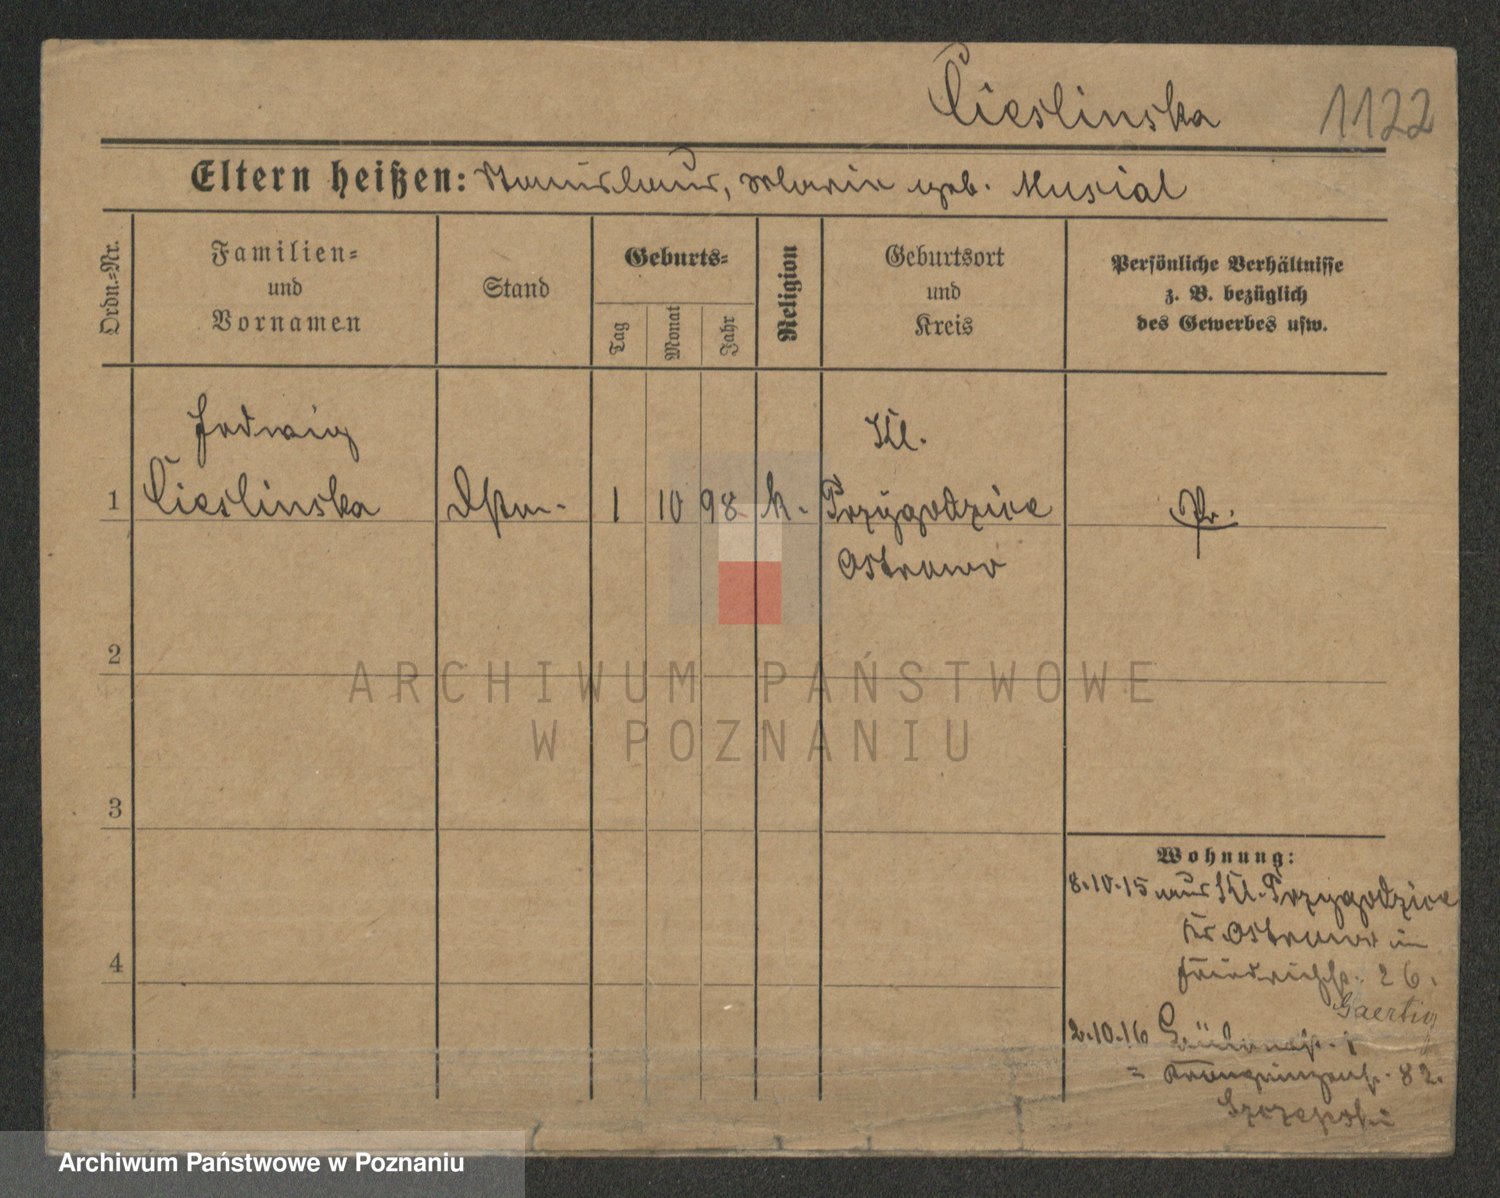 Cieslinska 1122
Eltern heißen: Stanislaus, Marie geb. Musial
Ordn.-Nr.
Familien-
und
Vornamen
Stand
Geburts-
Tag
Monat
Jahr
Religion
Geburtsort
und
Kreis
Persönliche Verhältnisse
z. B. bezüglich
des Gewerbes usw.
Hedwig
Kl.
1 Cieslinska Dstm. 1 10 98 k. Przygodzice Pr.
Ostrowo
2
ARCHIWUM PAŃSTWOWE
W POZNANIU
3
Wohnung:
8.10.15 aus Kl. Przygodzice
Kr Ostrowo in
Friedrichst. 26.
Gaertig
4
2.10.16
= Kronprinzenst. 82.
Archiwum Państwowe w Poznaniu